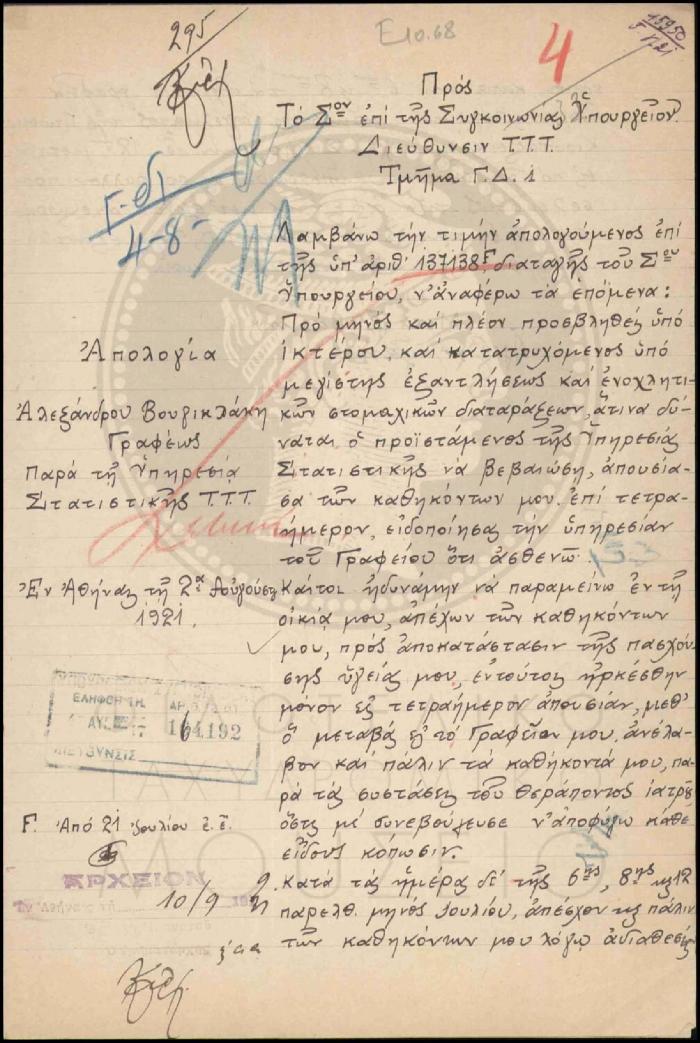 295
Ε10.68
15950
4
Πρὸς
Τὸ Σον ἐπὶ τῆς Συγκοινωνίας Ὑπουργεῖον
Διεύθυνσιν Τ.Τ.Τ.
Τμῆμα Γ.Δ. 1
4-8-
Λαμβάνω τὴν τιμὴν ἀπολογούμενος ἐπὶ
τῆς ὑπ' ἀριθ' 137138 F διαταγῆς τοῦ Σου
Ὑπουργείου, ν' ἀναφέρω τὰ ἑπόμενα:
Πρὸ μηνὸς καὶ πλέον προσβληθεὶς ὑπὸ
ἰκτέρου, καὶ κατατρυχόμενος ὑπὸ
μεγίστης ἐξαντλήσεως καὶ ἐνοχλητι-
κῶν στομαχικῶν διαταράξεων, ἅτινα δύ-
ναται ὁ προϊστάμενος τῆς Ὑπηρεσίας
Στατιστικῆς νὰ βεβαιώσῃ, ἀπουσία-
σα τῶν καθηκόντων μου ἐπὶ τετρα-
ήμερον, εἰδοποιήσας τὴν ὑπηρεσίαν
τοῦ Γραφείου ὅτι ἀσθενῶ.
Καίτοι ἠδυνάμην νὰ παραμείνω ἐν τῇ
οἰκίᾳ μου, ἀπέχων τῶν καθηκόντων
μου, πρὸς ἀποκατάστασιν τῆς πασχού-
σης ὑγείας μου, ἐντούτοις ἠρκέσθην
μόνον εἰς τετραήμερον ἀπουσίαν, μεθ'
ὃ μεταβὰς εἰς τὸ Γραφεῖον μου, ἀνέλα-
βον καὶ πάλιν τὰ καθήκοντά μου, πα-
ρὰ τὰς συστάσεις τοῦ θεράποντος ἰατροῦ
ὅστις μὲ συνεβούλευσε ν' ἀποφύγω κάθε
εἴδους κόπωσιν.
Κατὰ τὰς ἡμέρας δὲ τῆς 6ης, 8ης καὶ 12
παρελθ. μηνὸς Ἰουλίου, ἀπέσχον καὶ πάλιν
τῶν καθηκόντων μου λόγῳ ἀδιαθεσίας
Ἀπολογία
Ἀλεξάνδρου Βουγικλάκη
Γραφέως
παρὰ τῇ Ὑπηρεσίᾳ
Στατιστικῆς Τ.Τ.Τ.
Ἐν Ἀθήναις τῇ 2ᾳ Αὐγούστ
1921.
ΕΛΗΦΘΗ ΤΗ
ΑΥΓ
164.192
ΔΙΕΥΘΥΝΣΙΣ
F. Ἀπὸ 21 Ἰουλίου ἐ. ἔ.
ΑΡΧΕΙΟΝ
10/9 21
ΤΑΧΥΔΡΟΜΙΚΟ
ΜΟΥΣΕΙΟ